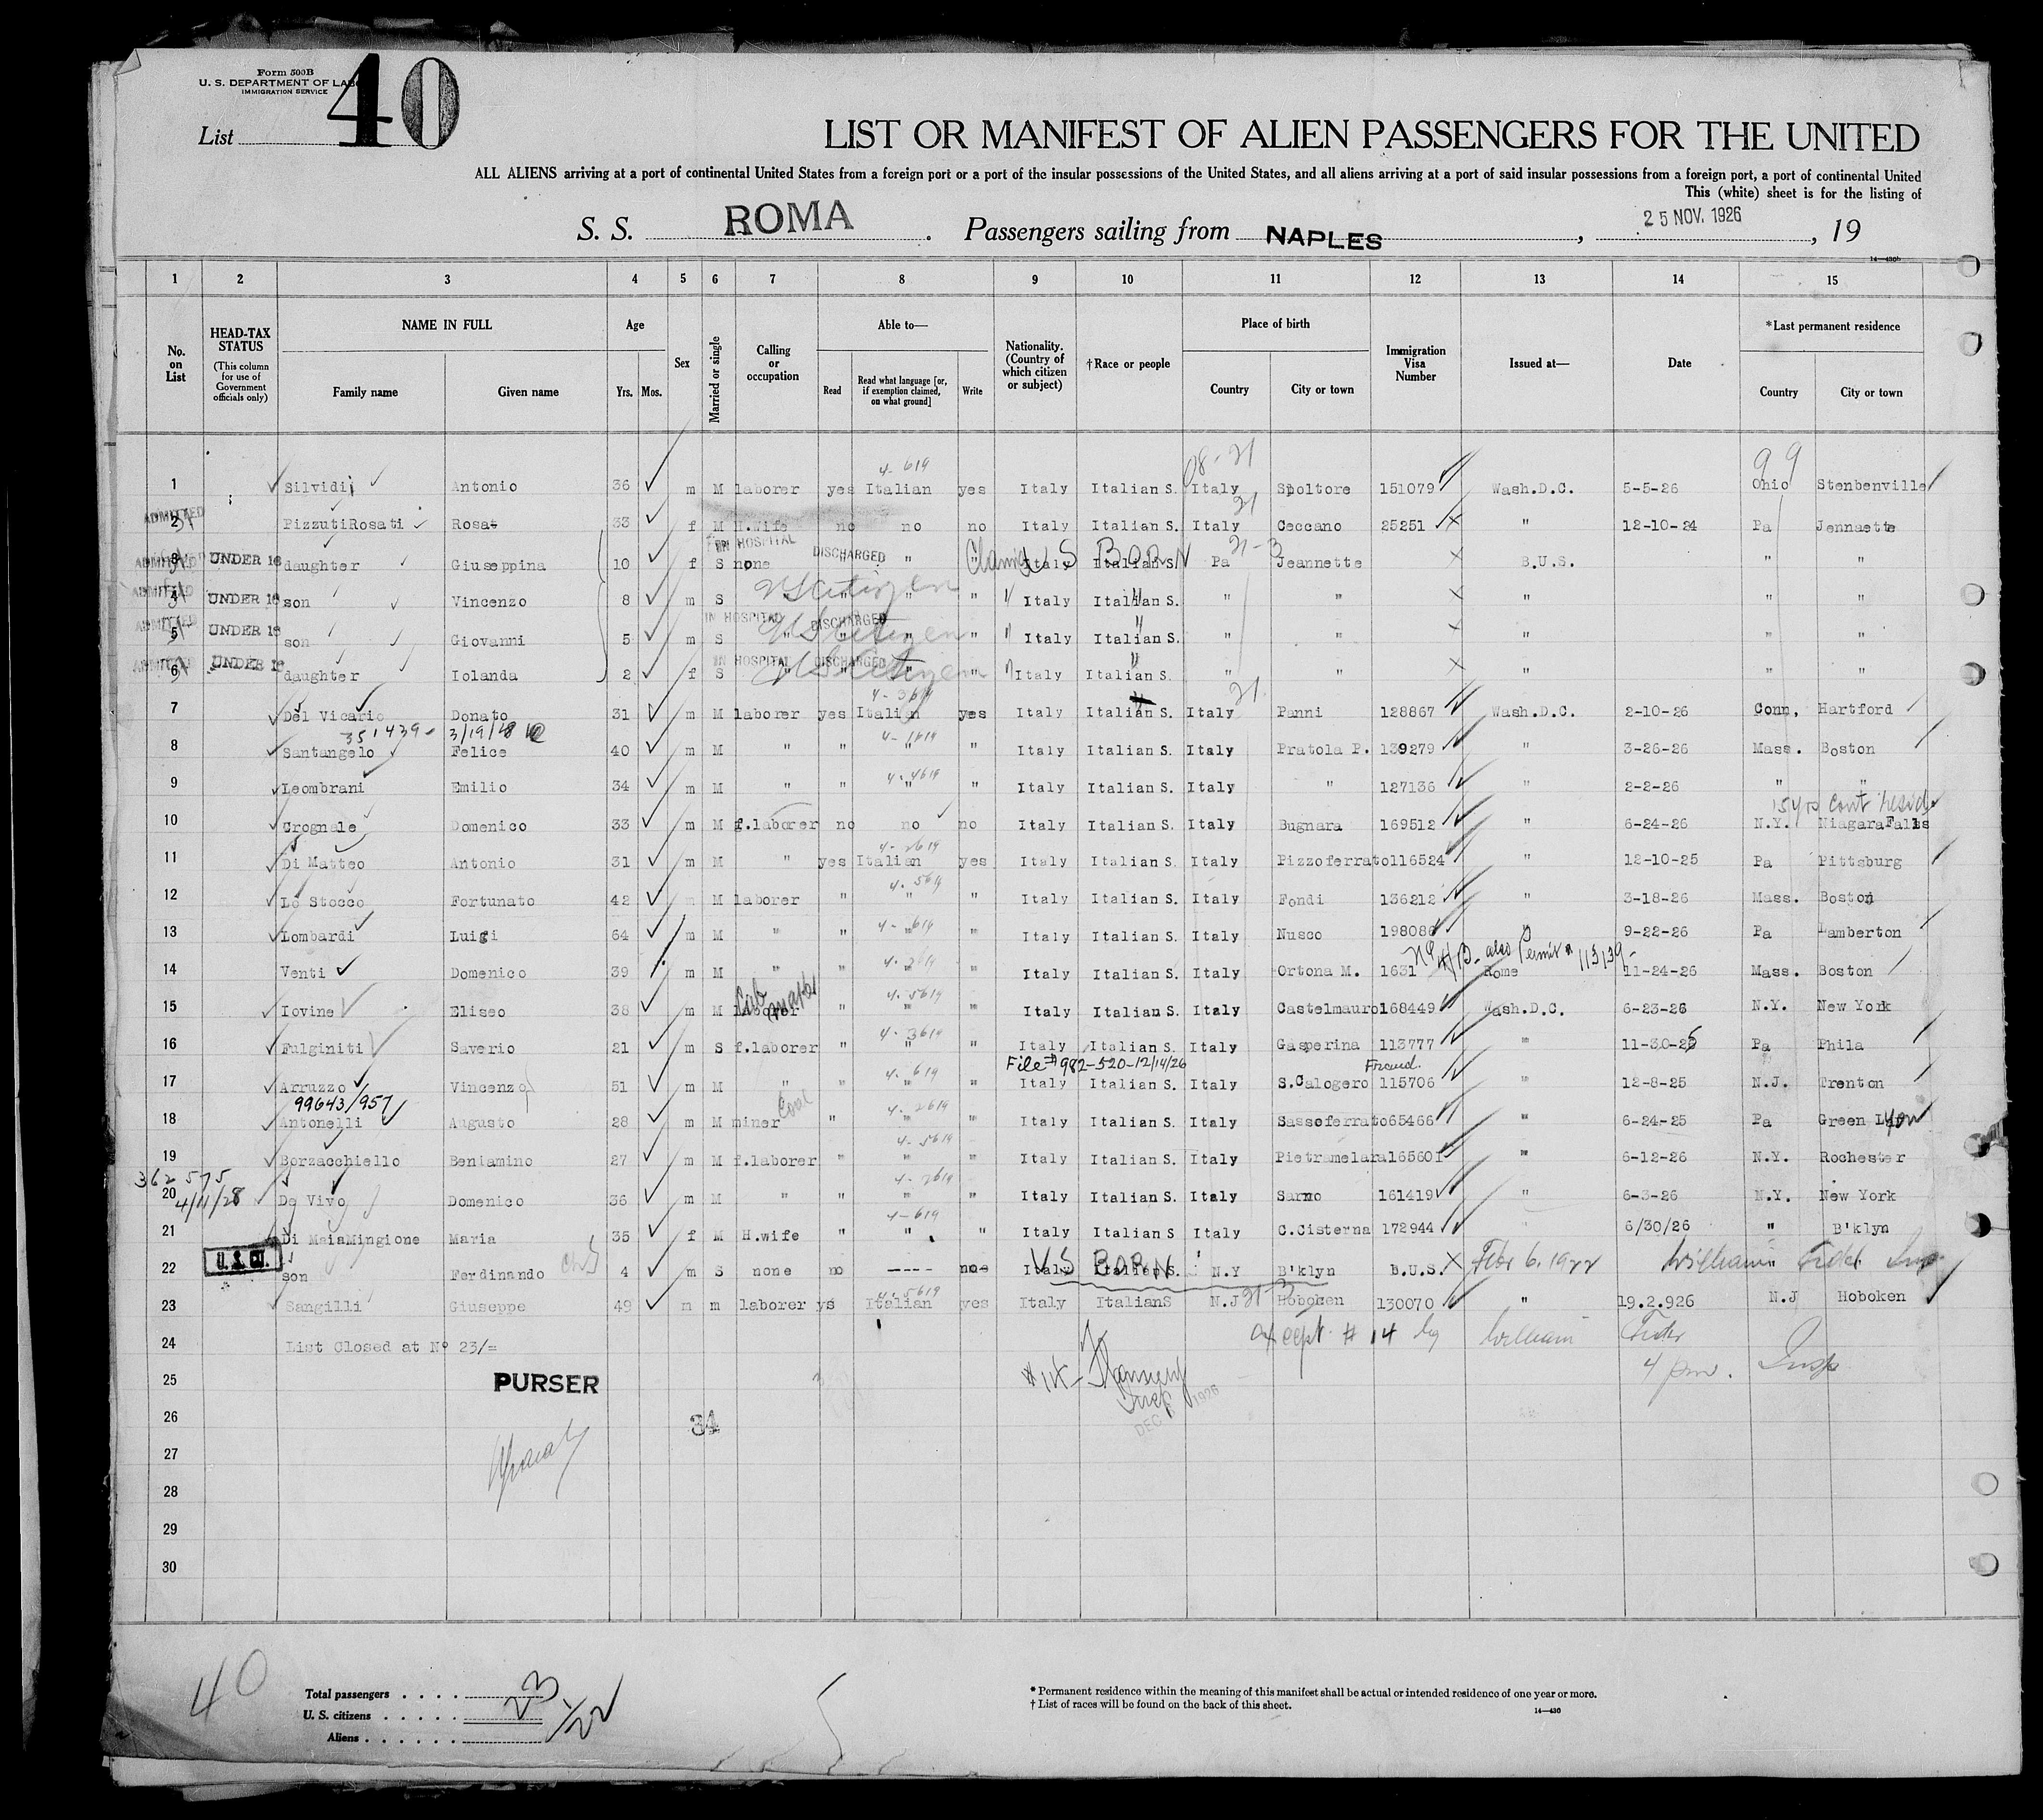 Form 500B
U. S. DEPARTMENT OF LABOR
IMMIGRATION SERVICE
List 40
LIST OR MANIFEST OF ALIEN PASSENGERS FOR THE UNITED
ALL ALIENS arriving at a port of continental United States from a foreign port or a port of the insular possessions of the United States, and all aliens arriving at a port of said insular possessions from a foreign port, a port of continental United
This (white) sheet is for the listing of
S. S. ROMA . Passengers sailing from NAPLES , 25 NOV. 1926 , 19
14—430b
1 2 3 4 5 6 7 8 9 10 11 12 13 14 15
No. on List
HEAD-TAX STATUS
(This column for use of Government officials only)
NAME IN FULL
Family name Given name
Age
Yrs. Mos.
Sex
Married or single
Calling or occupation
Able to—
Read
Read what language [or, if exemption claimed, on what ground]
Write
Nationality. (Country of which citizen or subject)
†Race or people
Place of birth
Country City or town
Immigration Visa Number
Issued at—
Date
*Last permanent residence
Country City or town
08-21 99
4-619
1 Silvidi Antonio 36 m M laborer yes Italian yes Italy Italian S. Italy Spoltore 151079 Wash.D.C. 5-5-26 Ohio Stenbenville
21
ADMITTED 2 PizzutiRosati Rosa 33 f M H.wife no no no Italy Italian S. Italy Ceccano 25251 " 12-10-24 Pa Jennaette
IN HOSPITAL DISCHARGED U S BORN 21-3
ADMITTED 3 UNDER 16 daughter Giuseppina 10 f S none " " Italy Italian S. Pa Jeannette B.U.S. " "
ADMITTED 4 UNDER 16 son Vincenzo 8 m S US Citizen " " " Italy Italian S. " " " " "
IN HOSPITAL DISCHARGED
ADMITTED 5 UNDER 16 son Giovanni 5 m S US Citizen " " " Italy Italian S. " " " " "
IN HOSPITAL DISCHARGED
ADMITTED 6 UNDER 16 daughter Iolanda 2 f S US Citizen " " Italy Italian S. " " " " "
4-3619 21
7 Del Vicario Donato 31 m M laborer yes Italian yes Italy Italian S. Italy Panni 128867 Wash.D.C. 2-10-26 Conn, Hartford
351439- 3/19/28
8 Santangelo Felice 40 m M " " " " Italy Italian S. Italy Pratola P. 139279 " 3-26-26 Mass. Boston
4-4619
9 Leombrani Emilio 34 m M " " " " Italy Italian S. Italy " 127136 " 2-2-26 " "
15 yrs cont resid
10 Crognale Domenico 33 m M f.laborer no no no Italy Italian S. Italy Bugnara 169512 " 6-24-26 N.Y. NiagaraFalls
4-2619
11 Di Matteo Antonio 31 m M " yes Italian yes Italy Italian S. Italy Pizzoferrato 116524 " 12-10-25 Pa Pittsburg
4-5619
12 Lo Stocco Fortunato 42 m M laborer " " " Italy Italian S. Italy Fondi 136212 " 3-18-26 Mass. Boston
4-619
13 Lombardi Luigi 64 m M " " " " Italy Italian S. Italy Nusco 198086 " 9-22-26 Pa Lamberton
also Permit # 113139-
14 Venti Domenico 39 m M " " " " Italy Italian S. Italy Ortona M. 1631 Rome 11-24-26 Mass. Boston
4-5619
15 Iovine Eliseo 38 m M laborer " " " Italy Italian S. Italy Castelmauro 168449 Wash.D.C. 6-23-26 N.Y. New York
4-3619
16 Fulginiti Saverio 21 m S f.laborer " " " Italy Italian S. Italy Gasperina 113777 " 11-30-25 Pa Phila
File #982-520-12/14/26
4-619
17 Arruzzo Vincenzo 51 m M " " " " Italy Italian S. Italy S.Calogero 115706 " 12-8-25 N.J. Trenton
99643/957 Coal 4-2619
18 Antonelli Augusto 28 m M miner " " " Italy Italian S. Italy Sassoferrato 65466 " 6-24-25 Pa Green
4-5619
19 Borzacchiello Beniamino 27 m M f.laborer " " " Italy Italian S. Italy Pietramelara 165601 " 6-12-26 N.Y. Rochester
362575 4/11/28 4-2619
20 De Vivo Domenico 36 m M " " " " Italy Italian S. Italy Sarno 161419 " 6-3-26 N.Y. New York
4-619
21 Di MaiaMingione Maria 35 f M H.wife " " " Italy Italian S Italy C.Cisterna 172944 " 6/30/26 " B'klyn
22 U.S.CI. son Ferdinando 4 m S none no ---- no Italy US BORN Italian S. N.Y B'klyn B.U.S. Febr 6. 1922 William " Insp
4-5619 21-3
23 Sangilli Giuseppe 49 m m laborer ys Italian yes Italy ItalianS N.J Hoboken 130070 " 19.2.926 N.J Hoboken
24 List Closed at Nº 23/= except # 14 by William
25 PURSER #14- Insp 4 pm. Insp
DEC 1926
26 34
27
28
29
30
40
Total passengers . . . . 23
U. S. citizens . . . . . 1/22
Aliens . . . . . .
* Permanent residence within the meaning of this manifest shall be actual or intended residence of one year or more.
† List of races will be found on the back of this sheet.
14—430